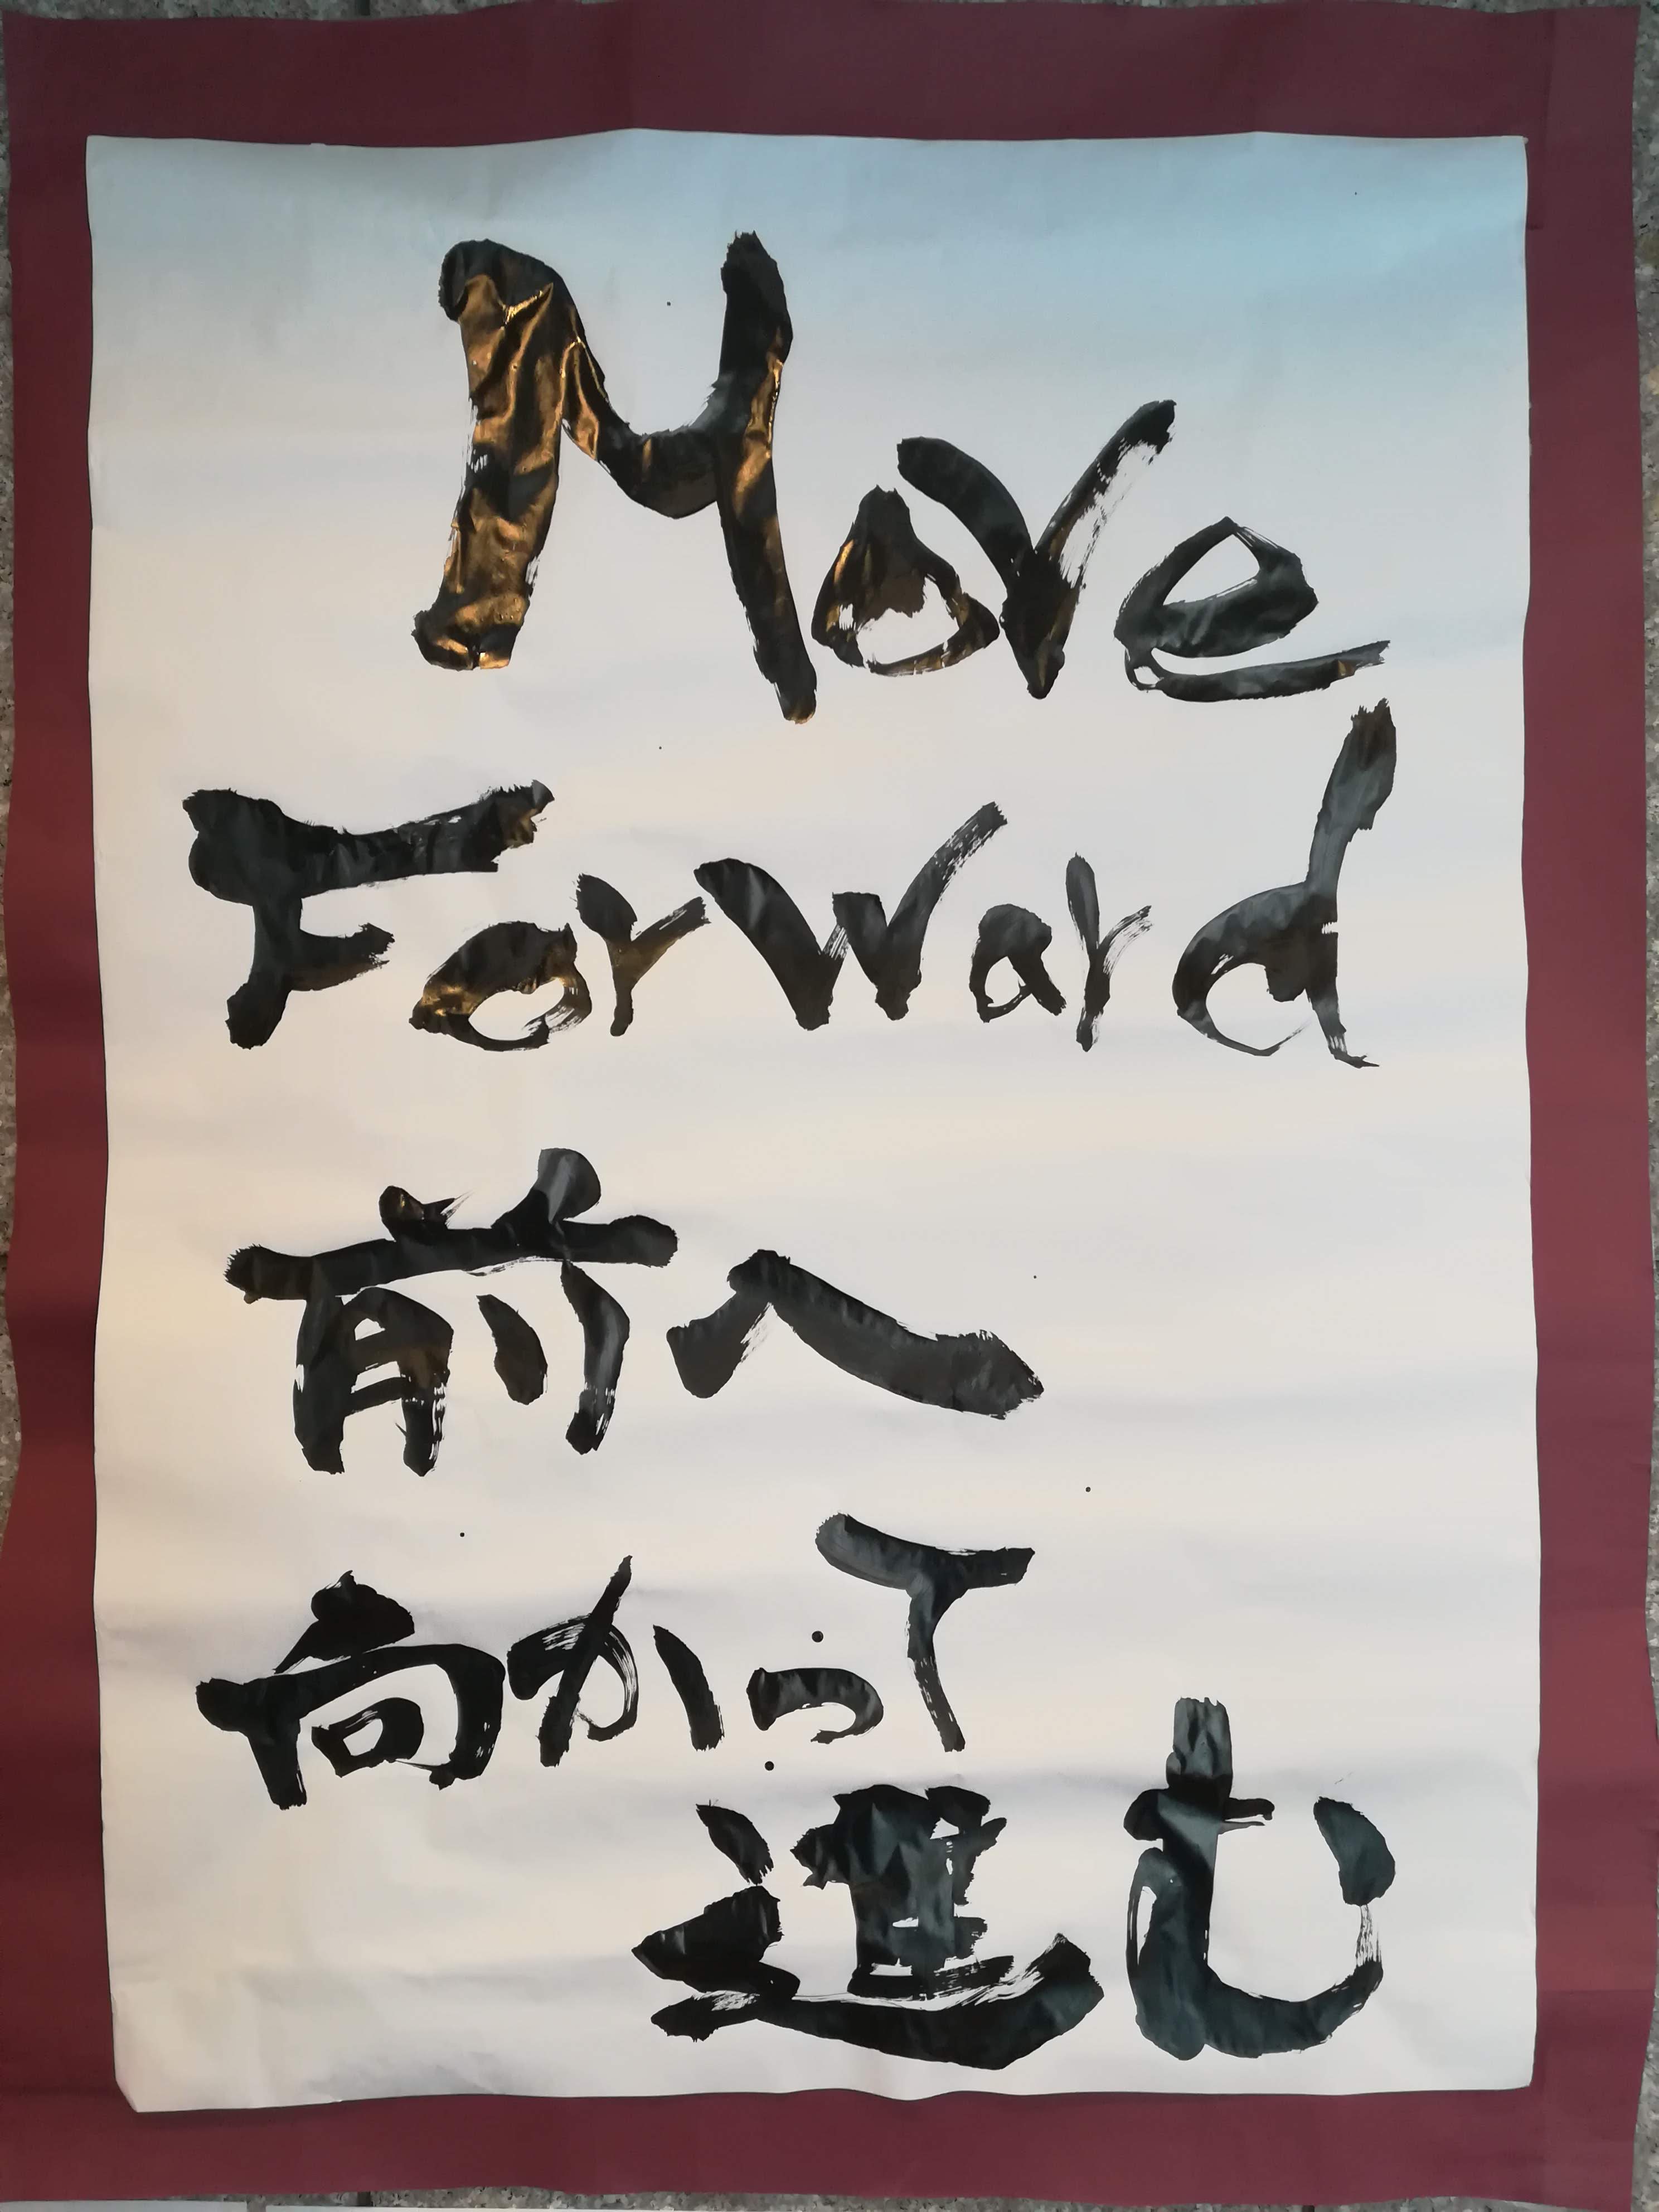 Move
Forward
前へ
向かって
進む